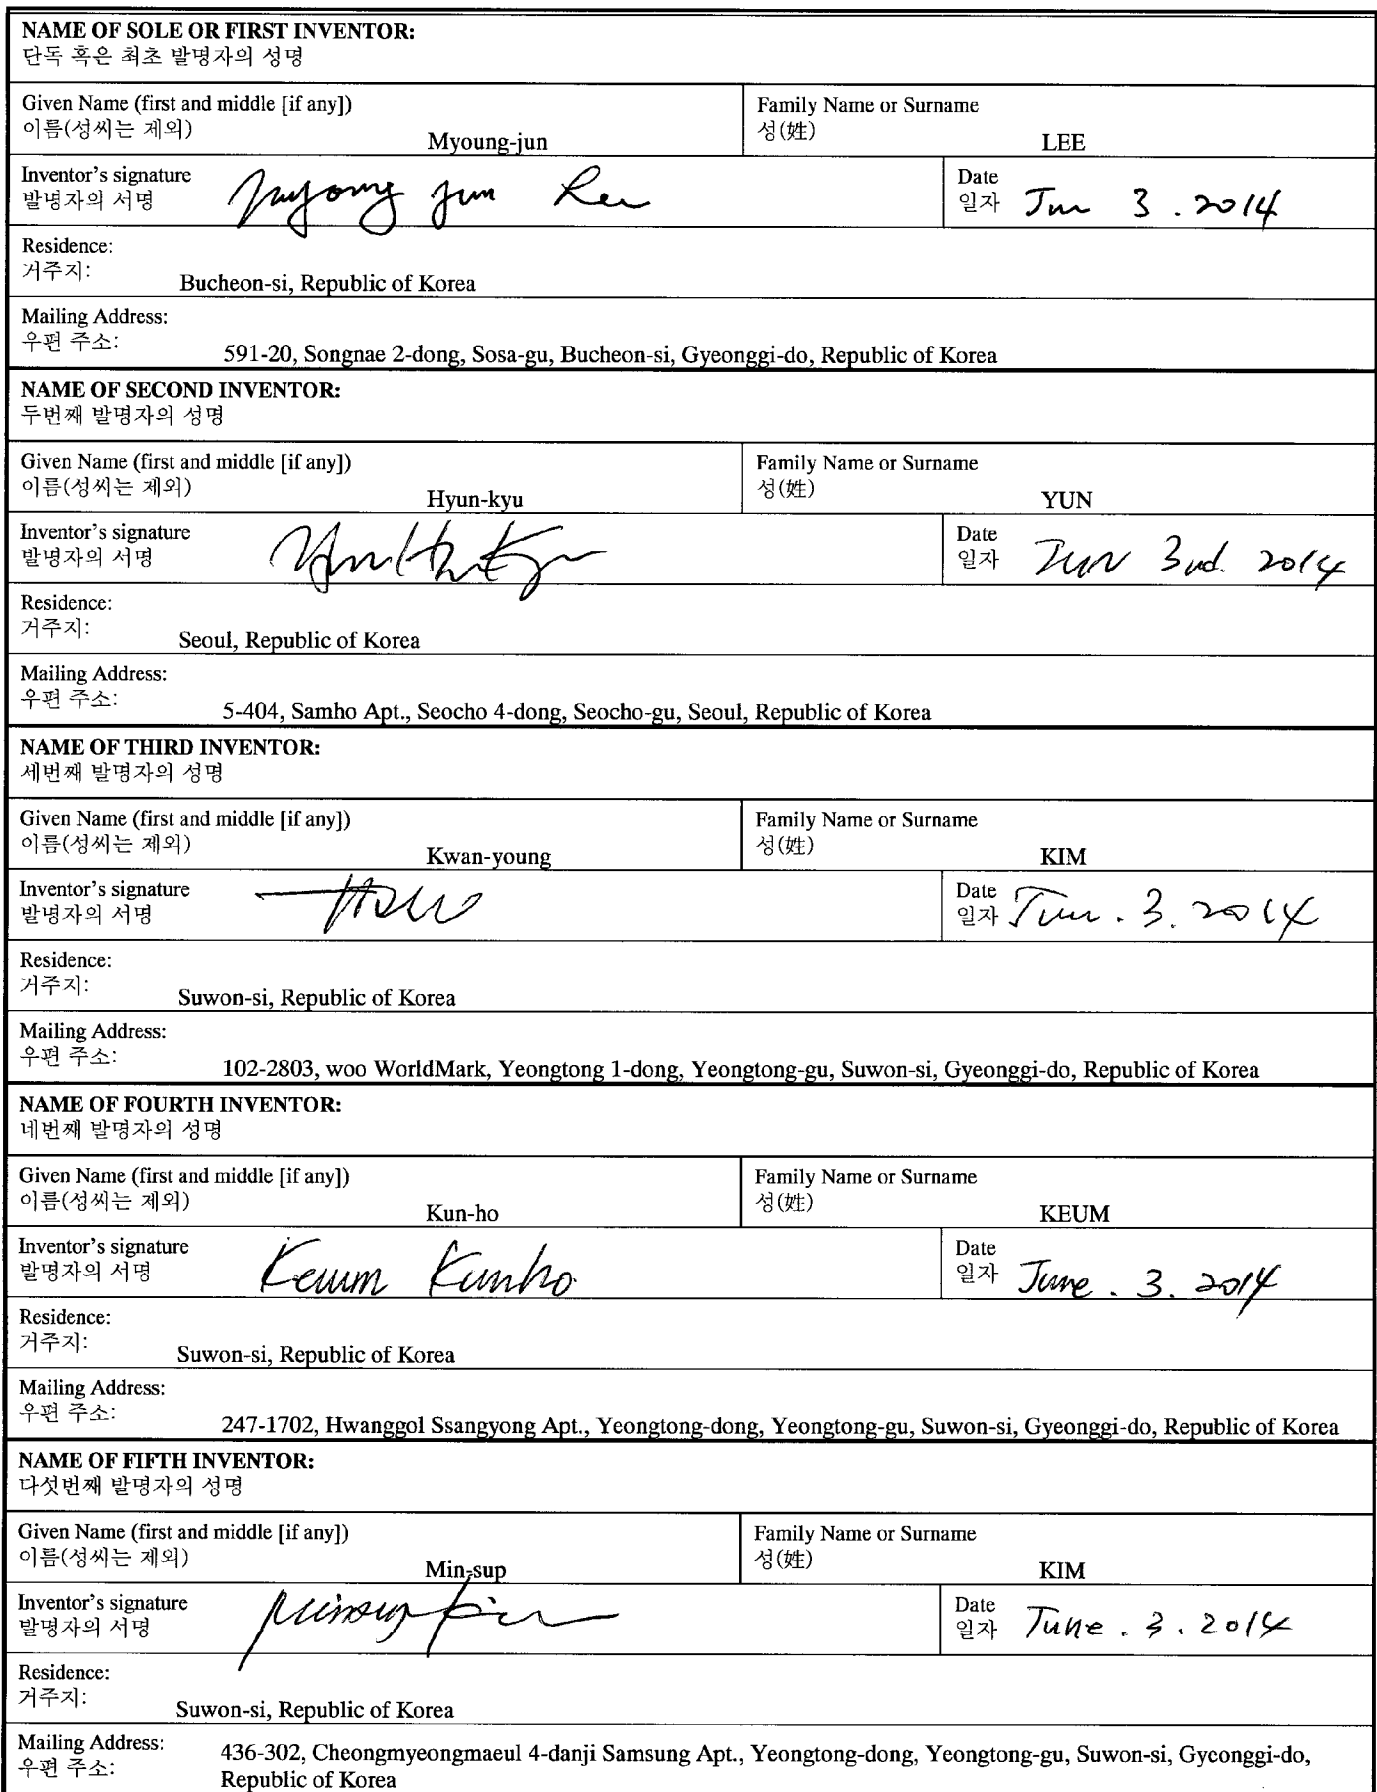 NAME OF SOLE OR FIRST INVENTOR:
단독 혹은 최초 발명자의 성명
Given Name (first and middle [if any])
이름(성씨는 제외)
Myoung-jun
Family Name or Surname
성(姓)
LEE
Inventor's signature
발명자의 서명
Myoung jun Lee
Date
일자
Jun 3 . 2014
Residence:
거주지:
Bucheon-si, Republic of Korea
Mailing Address:
우편 주소:
591-20, Songnae 2-dong, Sosa-gu, Bucheon-si, Gyeonggi-do, Republic of Korea
NAME OF SECOND INVENTOR:
두번째 발명자의 성명
Given Name (first and middle [if any])
이름(성씨는 제외)
Hyun-kyu
Family Name or Surname
성(姓)
YUN
Inventor's signature
발명자의 서명
Date
일자
Jun 3rd. 2014
Residence:
거주지:
Seoul, Republic of Korea
Mailing Address:
우편 주소:
5-404, Samho Apt., Seocho 4-dong, Seocho-gu, Seoul, Republic of Korea
NAME OF THIRD INVENTOR:
세번째 발명자의 성명
Given Name (first and middle [if any])
이름(성씨는 제외)
Kwan-young
Family Name or Surname
성(姓)
KIM
Inventor's signature
발명자의 서명
Date
일자
Jun . 3. 2014
Residence:
거주지:
Suwon-si, Republic of Korea
Mailing Address:
우편 주소:
102-2803, woo WorldMark, Yeongtong 1-dong, Yeongtong-gu, Suwon-si, Gyeonggi-do, Republic of Korea
NAME OF FOURTH INVENTOR:
네번째 발명자의 성명
Given Name (first and middle [if any])
이름(성씨는 제외)
Kun-ho
Family Name or Surname
성(姓)
KEUM
Inventor's signature
발명자의 서명
Keum Kunho
Date
일자
June . 3. 2014
Residence:
거주지:
Suwon-si, Republic of Korea
Mailing Address:
우편 주소:
247-1702, Hwanggol Ssangyong Apt., Yeongtong-dong, Yeongtong-gu, Suwon-si, Gyeonggi-do, Republic of Korea
NAME OF FIFTH INVENTOR:
다섯번째 발명자의 성명
Given Name (first and middle [if any])
이름(성씨는 제외)
Min-sup
Family Name or Surname
성(姓)
KIM
Inventor's signature
발명자의 서명
Minsup Kim
Date
일자
June . 3 . 2014
Residence:
거주지:
Suwon-si, Republic of Korea
Mailing Address:
우편 주소:
436-302, Cheongmyeongmaeul 4-danji Samsung Apt., Yeongtong-dong, Yeongtong-gu, Suwon-si, Gyeonggi-do,
Republic of Korea